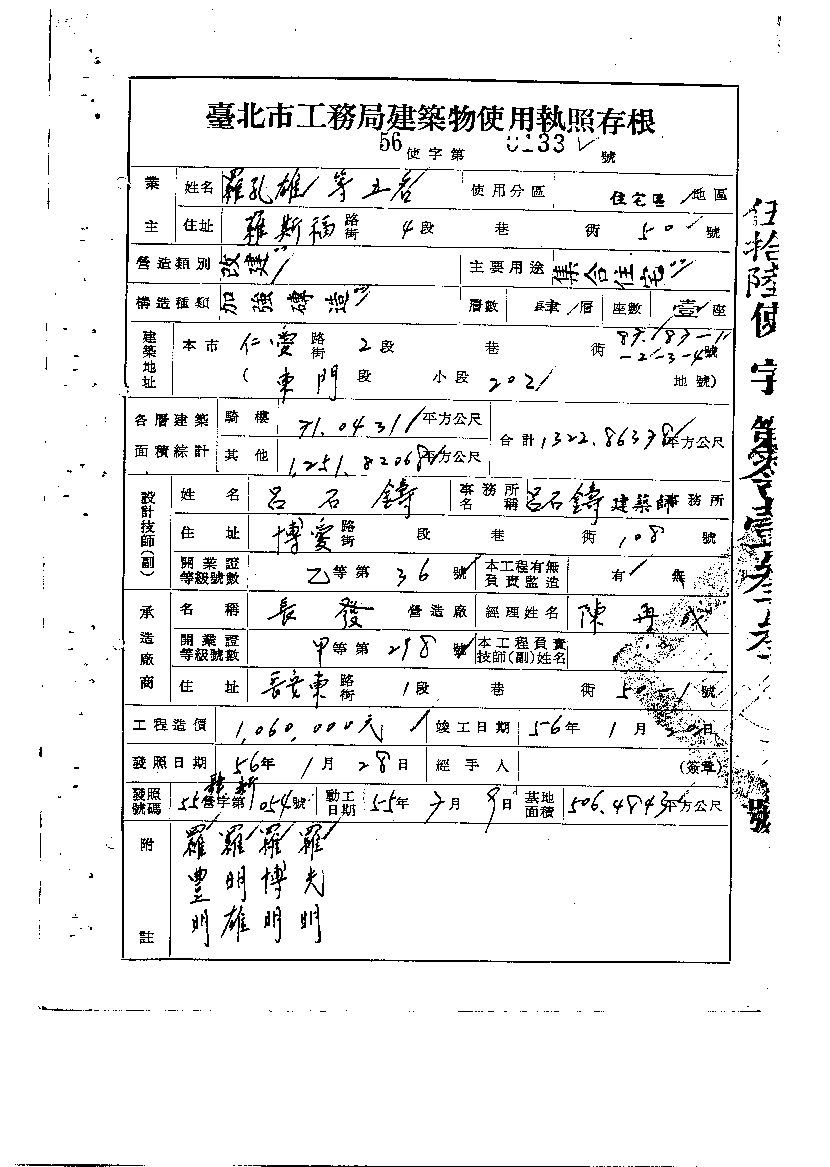 臺北市工務局建築物使用執照存根
56使字第0133號
業主 姓名 羅孔雄等五名 使用分區 住宅區 地區
住址 羅斯福路街 4段 巷 街 50 號
營造類別 改建 主要用途 集合住宅
構造種類 加強磚造 層數 肆層 座數 壹座
建築地址 本市 仁愛路街 2段 巷 街 87. 87-1 -2-3-4號
(東門段 小段 202 地號)
各層建築面積綜計 騎樓 71.0431平方公尺 合計 1322.8637平方公尺
其他 1,251.8206平方公尺
設計技師(副) 姓名 呂石鑄 事務所名稱 呂石鑄建築師事務所
住址 博愛路街 段 巷 街 108 號
開業證等級號數 乙等第36號 本工程有無負責監造 有 無
承造廠商 名稱 長發 營造廠 經理姓名 陳再成
開業證等級號數 甲等第298號 本工程負責技師(副)姓名
住址 長安東路街 1段 巷 街 50-1號
工程造價 1,060,000元 竣工日期 56年1月20日
發照日期 56年1月28日 經手人 (簽章)
發照號碼 55營字第1054號 動工日期 55年7月9日 基地面積 506.4843平方公尺
附註 羅豐明 羅明雄 羅博明 羅光明
伍拾陸使字第零壹叁叁號